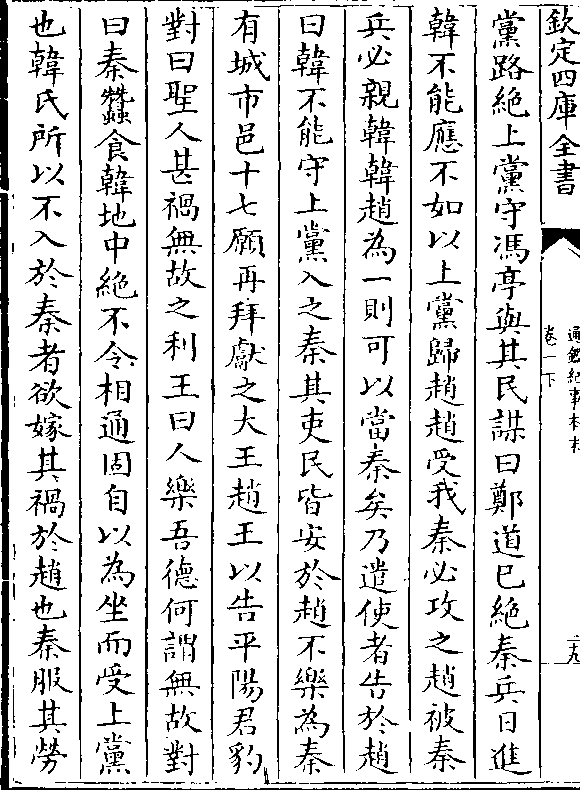 欽定四庫全書
通鑑紀事本末
卷一下
二九
黨路絶上黨守馮亭與其民謀曰鄭道已絶秦兵日進
韓不能應不如以上黨歸趙趙受我秦必攻之趙被秦
兵必親韓韓趙為一則可以當秦矣乃遣使者告於趙
曰韓不能守上黨入之秦其吏民皆安於趙不樂為秦
有城市邑十七願再拜獻之大王趙王以告平陽君豹
對曰聖人甚禍無故之利王曰人樂吾德何謂無故對
曰秦蠶食韓地中絶不令相通固自以為坐而受上黨
也韓氏所以不入於秦者欲嫁其禍於趙也秦服其勞